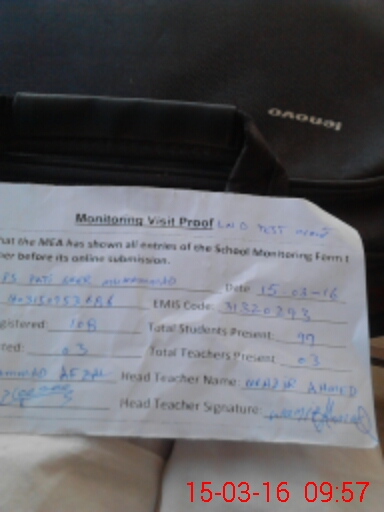 lenovo
Monitoring Visit Proof LND TEST
hat the MEA has shown all entries of the School Monitoring Form t
her before its online submission.
PS Date 15-03-16
EMIS Code: 31320293
gistered: 108 Total Students Present: 99
ted: 03 Total Teachers Present 03
AFZAL Head Teacher Name: NAZIR AHMED
Head Teacher Signature:
15-03-16 09:57